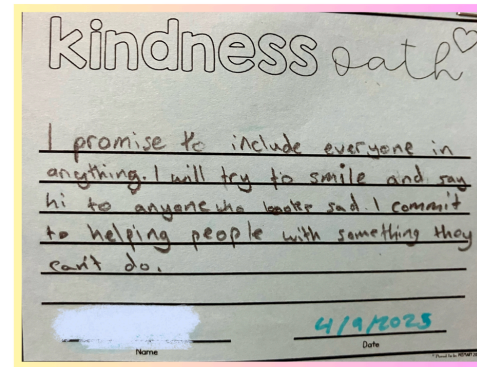 kindness oath
I promise to include everyone in
anything. I will try to smile and say
hi to anyone who looks sad. I commit
to helping people with something they
can't do.
4/9/2025
Name
Date